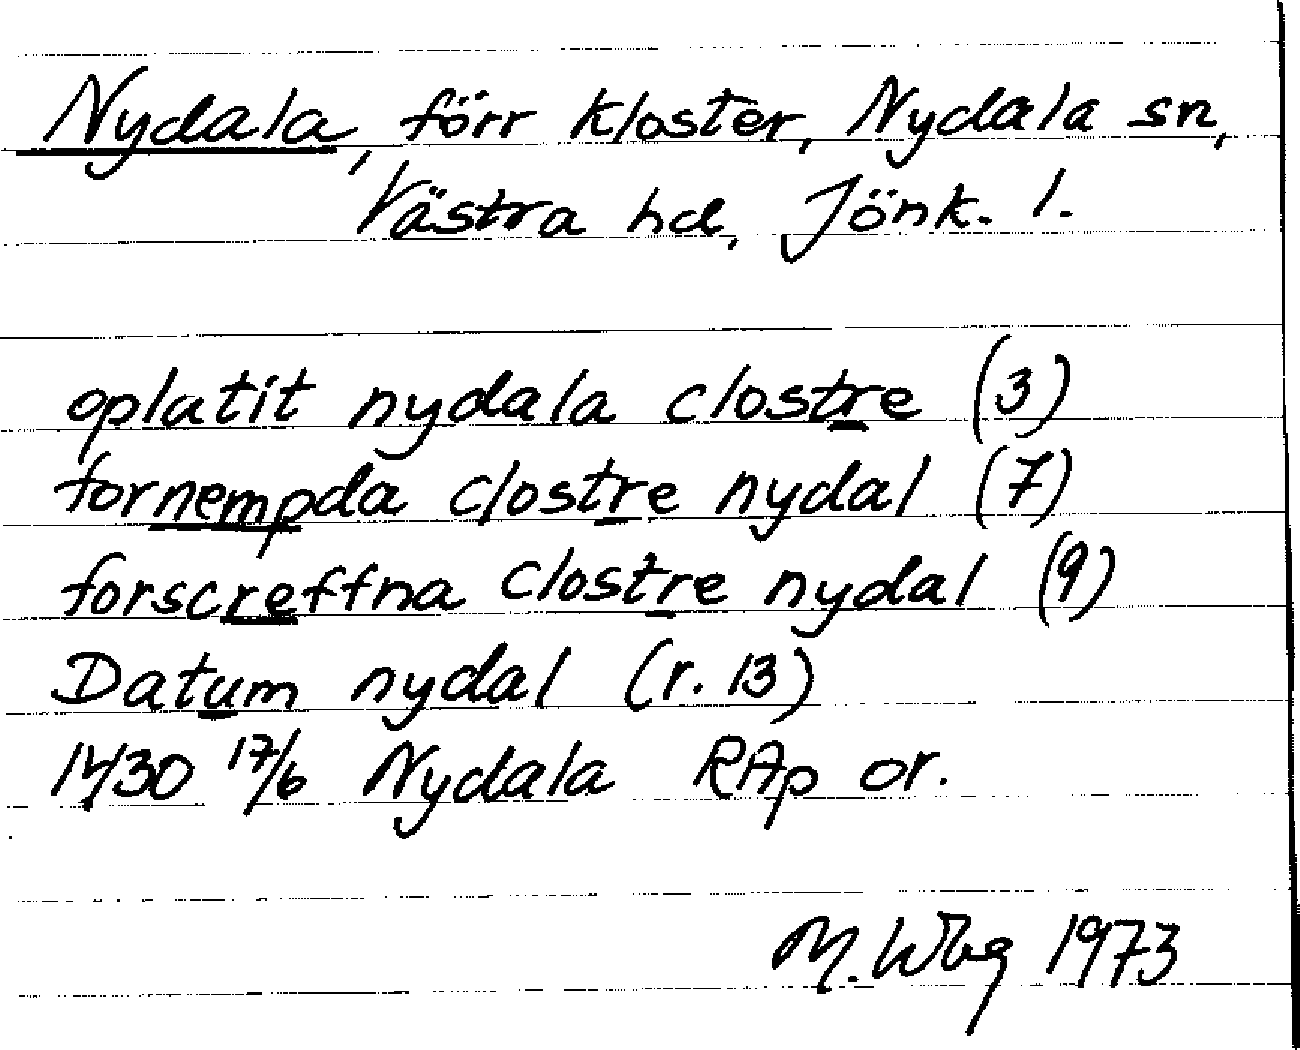 Nydala, förr kloster, Nydala sn,
Västra hd, Jönk. l.
oplatit nydala clostre (3)
fornempda clostre nydal (7)
forscreffna clostre nydal (9)
Datum nydal (r. 13)
1430 17/6 Nydala RAp or.
M. Wbg 1973